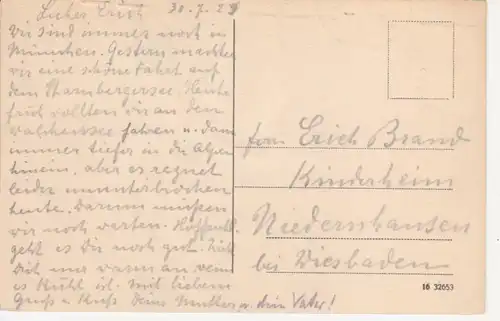 Lieber Erich 30.7.29
Wir sind immer noch in
München. Gestern machten
wir eine schöne Fahrt auf
dem Starnbergersee. Heute
früh wollten wir an den
Walchensee fahren u. dann
immer tiefer in die Alpen
hinein, aber es regnet
leider ununterbrochen
heute. Darum müssen
wir noch warten. Hoffentl.
geht es Dir noch gut. Zieh
Dich nur warm an wenn
es kühl ist. Mit liebem
Gruß u. Kuß Deine Mutter u. dein Vater!
Erich Brand
Kinderheim
Niedernhausen
bei Wiesbaden
16 32653